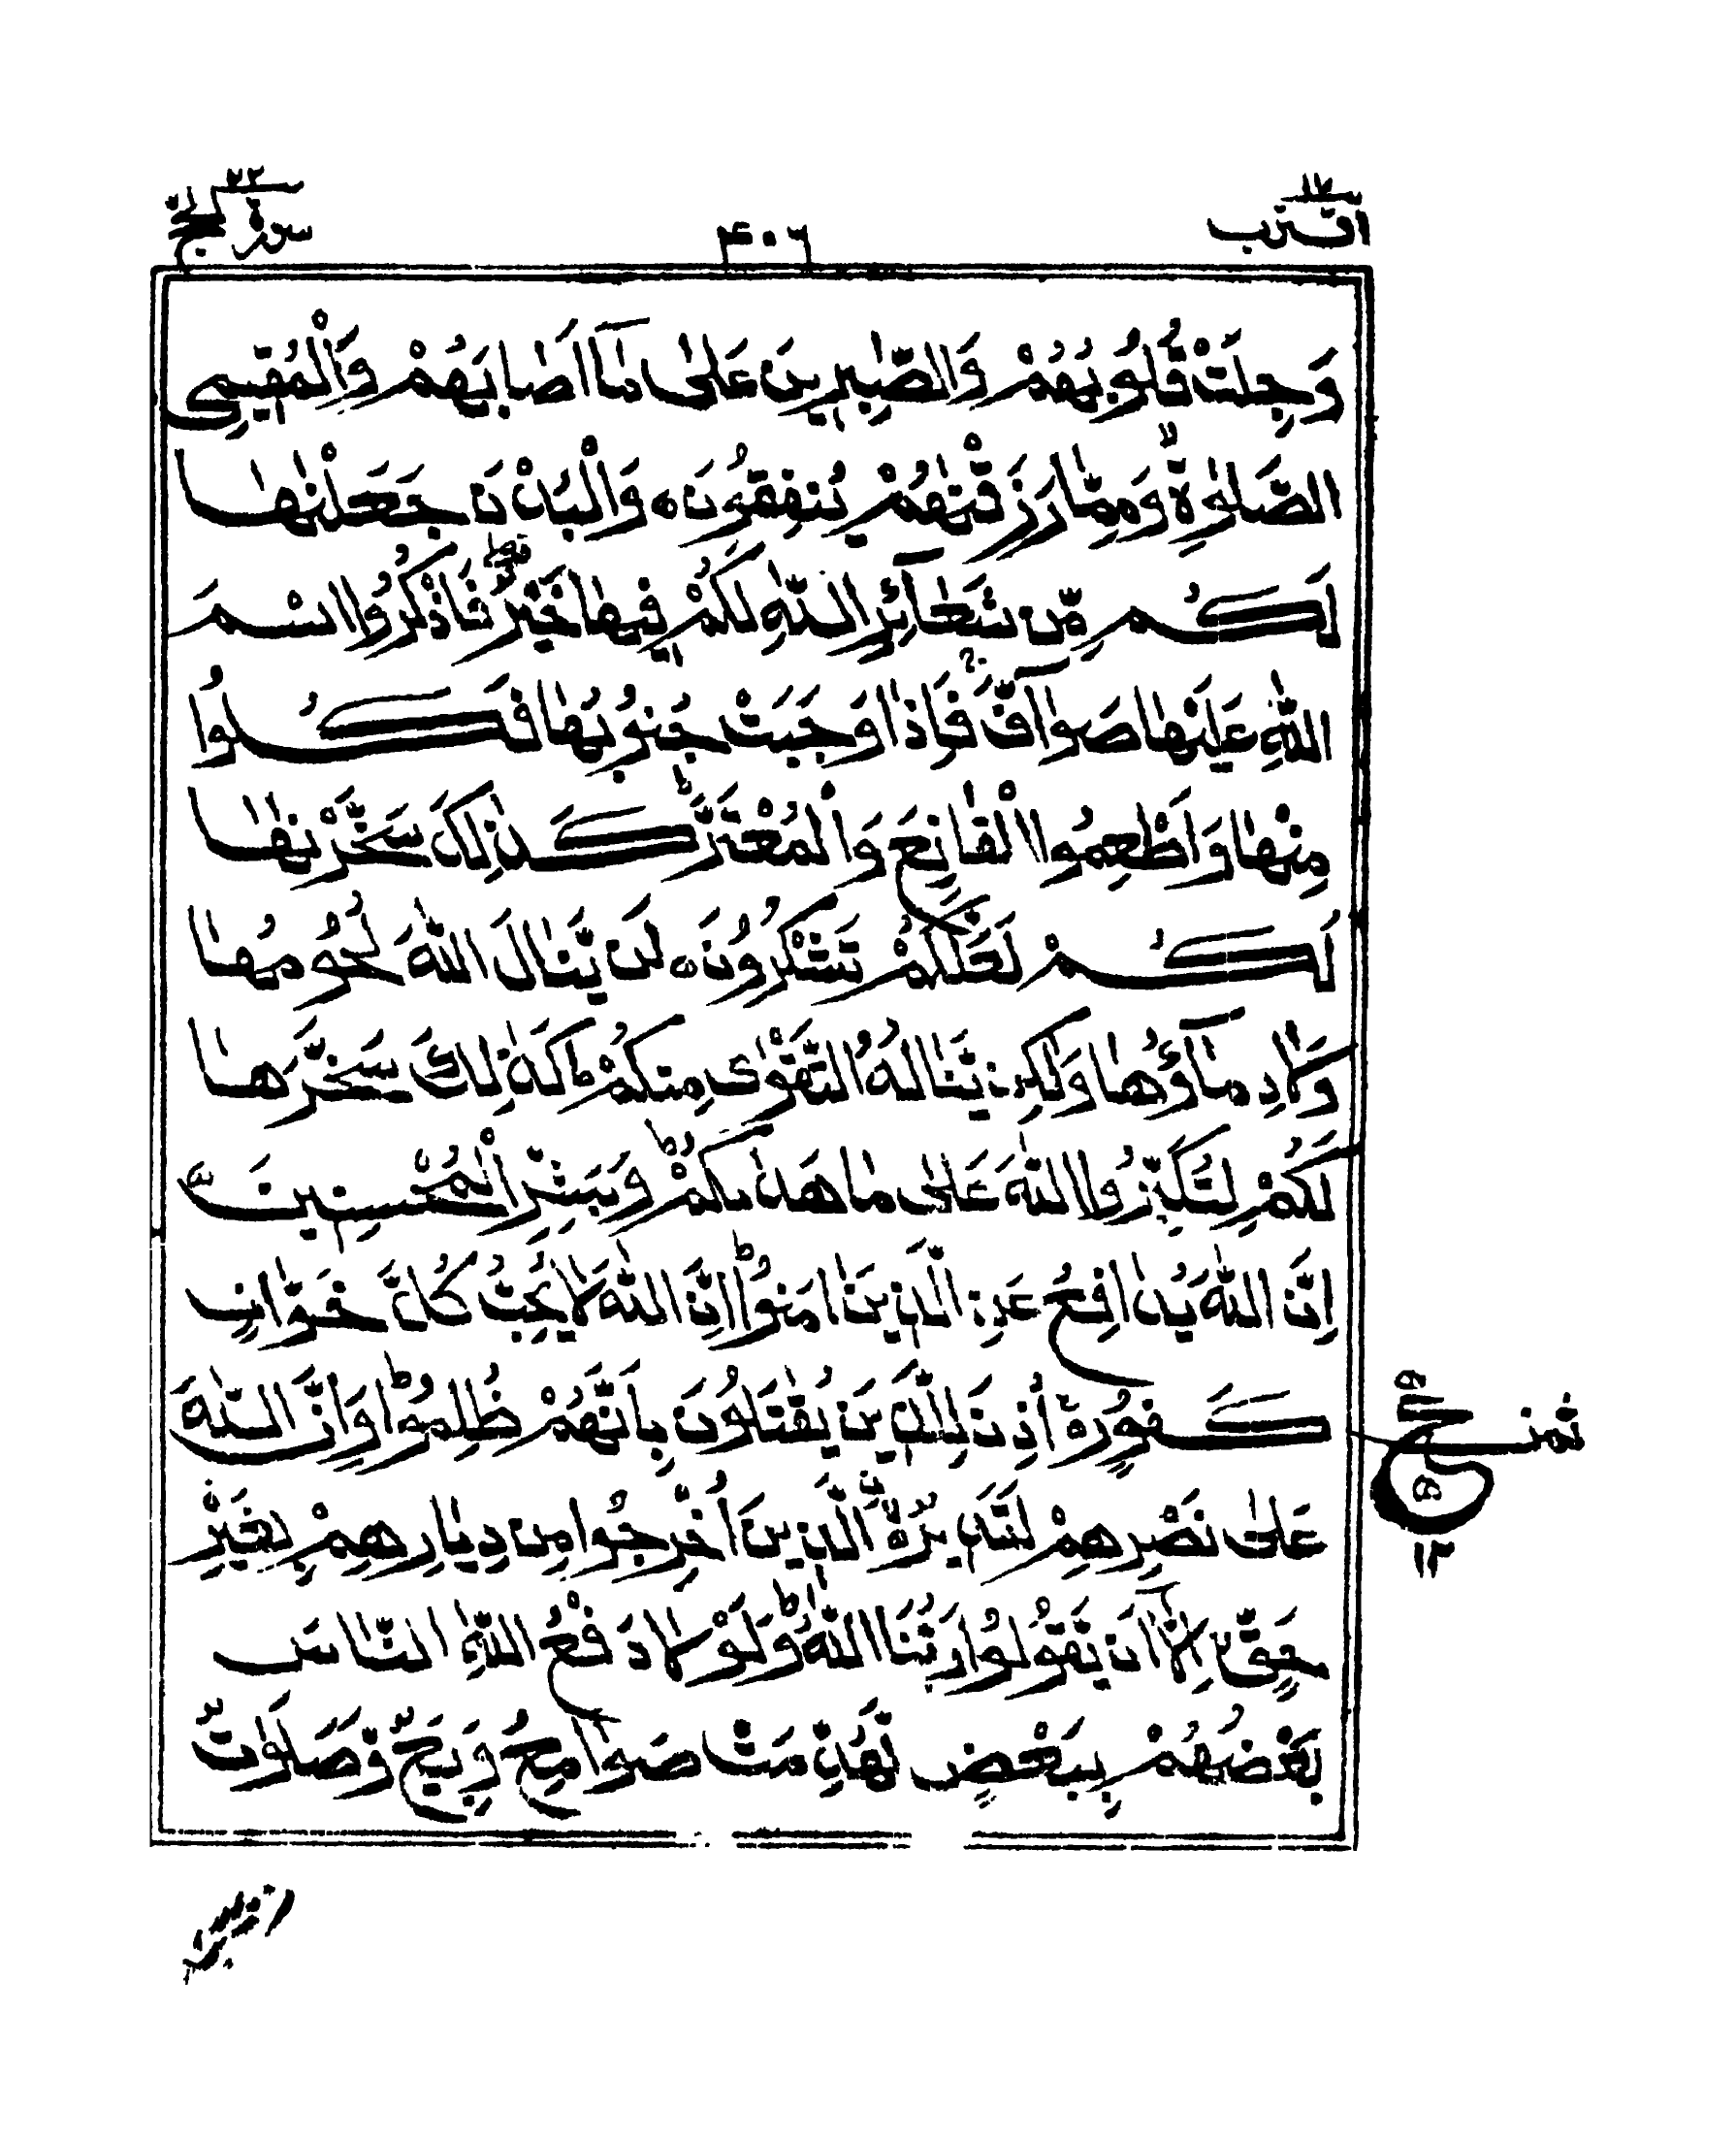 اقترب ١٧
٤٠٦
سورة الحج ٢٢
وَجِلَتْ قُلُوبُهُمْ وَالصّٰبِرِيْنَ عَلٰى مَآ اَصَابَهُمْ وَالْمُقِيْمِى
الصَّلٰوةِ ۙ وَمِمَّا رَزَقْنٰهُمْ يُنْفِقُوْنَ ه وَالْبُدْنَ جَعَلْنٰهَا
لَكُمْ مِّنْ شَعَآئِرِ اللّٰهِ لَكُمْ فِيْهَا خَيْرٌ ۖ فَاذْكُرُوا اسْمَ
اللّٰهِ عَلَيْهَا صَوَآفَّ ۚ فَاِذَا وَجَبَتْ جُنُوْبُهَا فَكُلُوْا
مِنْهَا وَاَطْعِمُوا الْقَانِعَ وَالْمُعْتَرَّ ؕ كَذٰلِكَ سَخَّرْنٰهَا
لَكُمْ لَعَلَّكُمْ تَشْكُرُوْنَ ه لَنْ يَّنَالَ اللّٰهَ لُحُوْمُهَا
وَلَا دِمَآؤُهَا وَلٰكِنْ يَّنَالُهُ التَّقْوٰى مِنْكُمْ ؕ كَذٰلِكَ سَخَّرَهَا
لَكُمْ لِتُكَبِّرُوا اللّٰهَ عَلٰى مَا هَدٰىكُمْ ؕ وَبَشِّرِ الْمُحْسِنِيْنَ ه
اِنَّ اللّٰهَ يُدٰفِعُ عَنِ الَّذِيْنَ اٰمَنُوْا ؕ اِنَّ اللّٰهَ لَا يُحِبُّ كُلَّ خَوَّانٍ
كَفُوْرٍ ه اُذِنَ لِلَّذِيْنَ يُقٰتَلُوْنَ بِاَنَّهُمْ ظُلِمُوْا ؕ وَاِنَّ اللّٰهَ
عَلٰى نَصْرِهِمْ لَقَدِيْرُ ه ۨالَّذِيْنَ اُخْرِجُوْا مِنْ دِيَارِهِمْ بِغَيْرِ
حَقٍّ اِلَّآ اَنْ يَّقُوْلُوْا رَبُّنَا اللّٰهُ ؕ وَلَوْلَا دَفْعُ اللّٰهِ النَّاسَ
بَعْضَهُمْ بِبَعْضٍ لَّهُدِّمَتْ صَوَامِعُ وَبِيَعٌ وَّصَلَوٰتٌ
ثمن
ع ٥
١٢